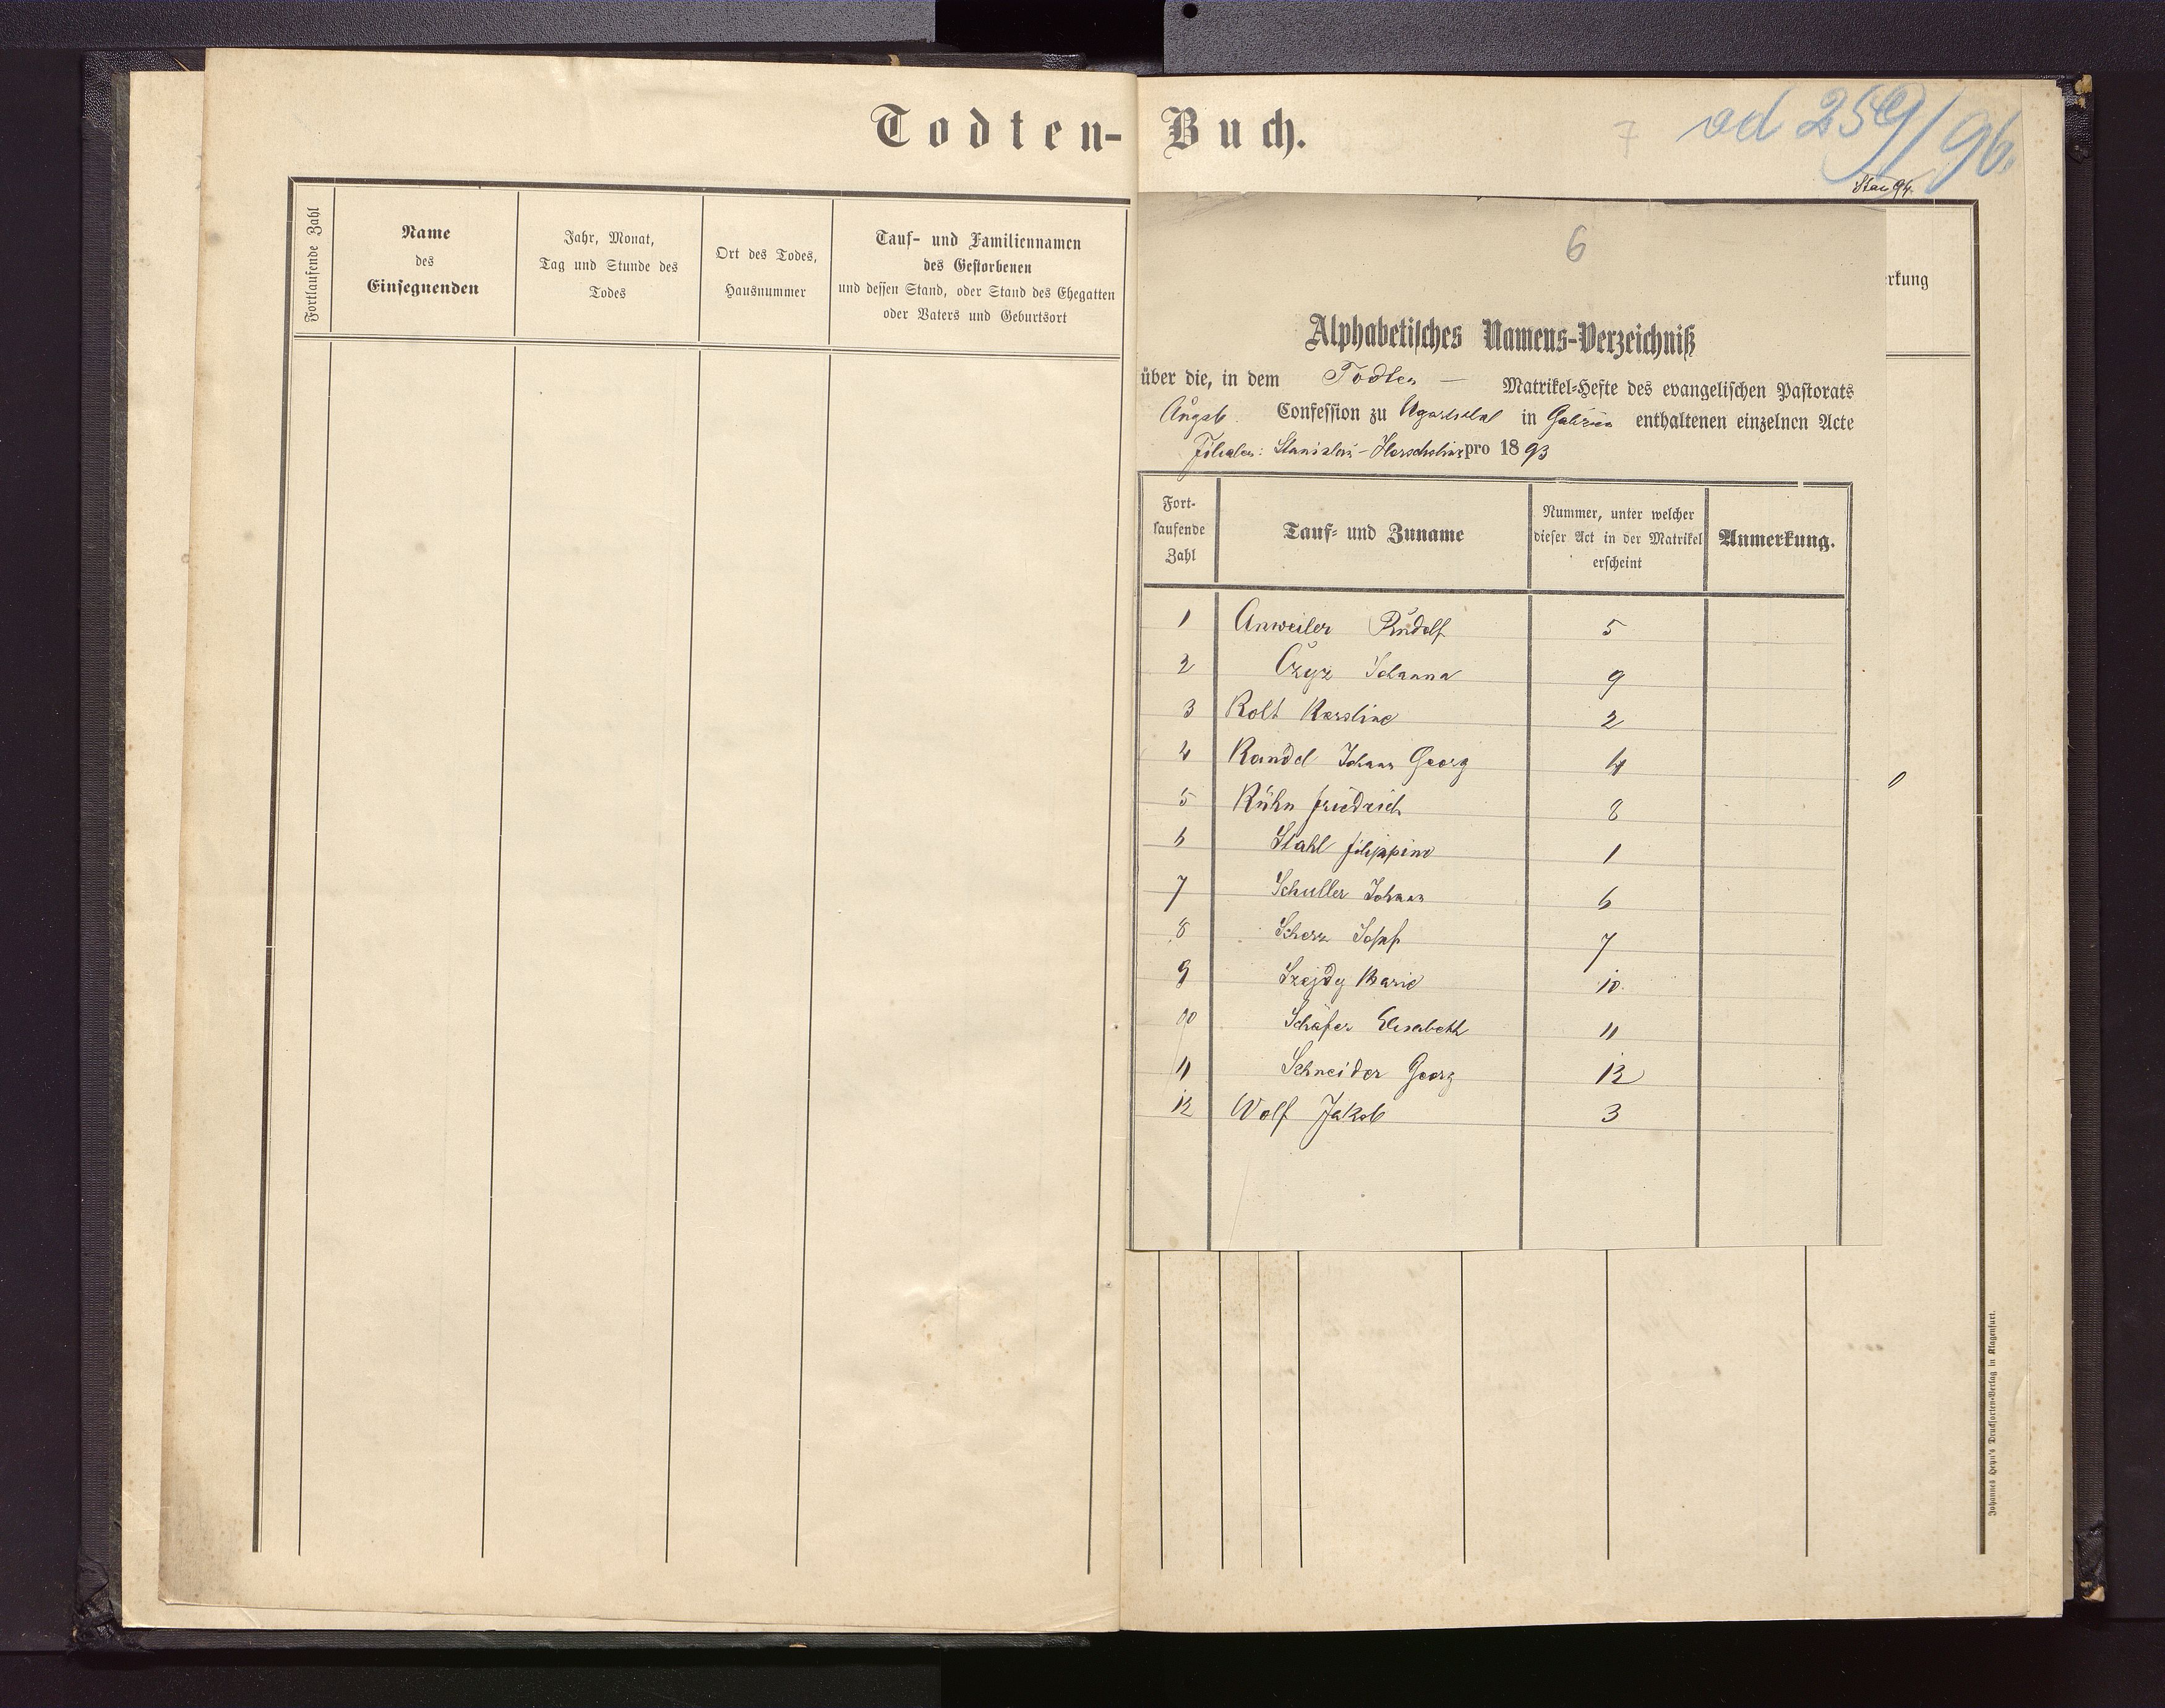 Todten- Buch.
7
ad 259/96.
Fortlaufende Zahl
Name
des
Einsegnenden
Jahr, Monat,
Tag und Stunde des
Todes
Ort des Todes,
Hausnummer
Tauf- und Familiennamen
des Gestorbenen
und dessen Stand, oder Stand des Ehegatten
oder Vaters und Geburtsort
rkung
6
Alphabetisches Namens-Verzeichniß
über die, in dem Todten — Matrikel-Hefte des evangelischen Pastorats
Augsb. Confession zu Ugartsthal in Galizien enthaltenen einzelnen Acte
Filialen: Stanislau - pro 1893
Fort-
laufende
Zahl
Tauf- und Zuname
Nummer, unter welcher
dieser Act in der Matrikel
erscheint
Anmerkung.
1 Anweiler Rudolf 5
2 Czyz Johanna 9
3 Kolt Karoline 2
4 Kandel Johann Georg 4
5 Kühn Friedrich 8
6 Stahl Filippine 1
7 Schuller Johann 6
8 Scherz Josef 7
9 Szejdy Marie 10.
10 Schäfer Elisabeth 11
11 Schneider Georg 12
12 Wolf Jakob 3
Johannes Heyn's Drucksorten-Verlag in Klagenfurt.